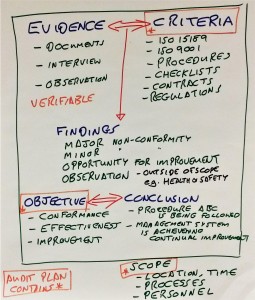 EVIDENCE
- DOCUMENTS
- INTERVIEW
- OBSERVATION
VERIFIABLE
* CRITERIA
- ISO 15189
- ISO 9001
- PROCEDURES
- CHECKLISTS
- CONTRACTS
- REGULATIONS
FINDINGS
MAJOR NON-CONFORMITY
MINOR " "
OPPORTUNITY FOR IMPROVEMENT
OBSERVATION - OUTSIDE OF SCOPE
e.g. HEALTH & SAFETY
* OBJECTIVE
- CONFORMANCE
- EFFECTIVENESS
- IMPROVEMENT
CONCLUSION
- PROCEDURE ABC
IS BEING FOLLOWED
- MANAGEMENT SYSTEM
IS ACHIEVING
CONTINUAL IMPROVEMENT
AUDIT PLAN
CONTAINS *
* SCOPE
- LOCATION, TIME
- PROCESSES
- PERSONNEL